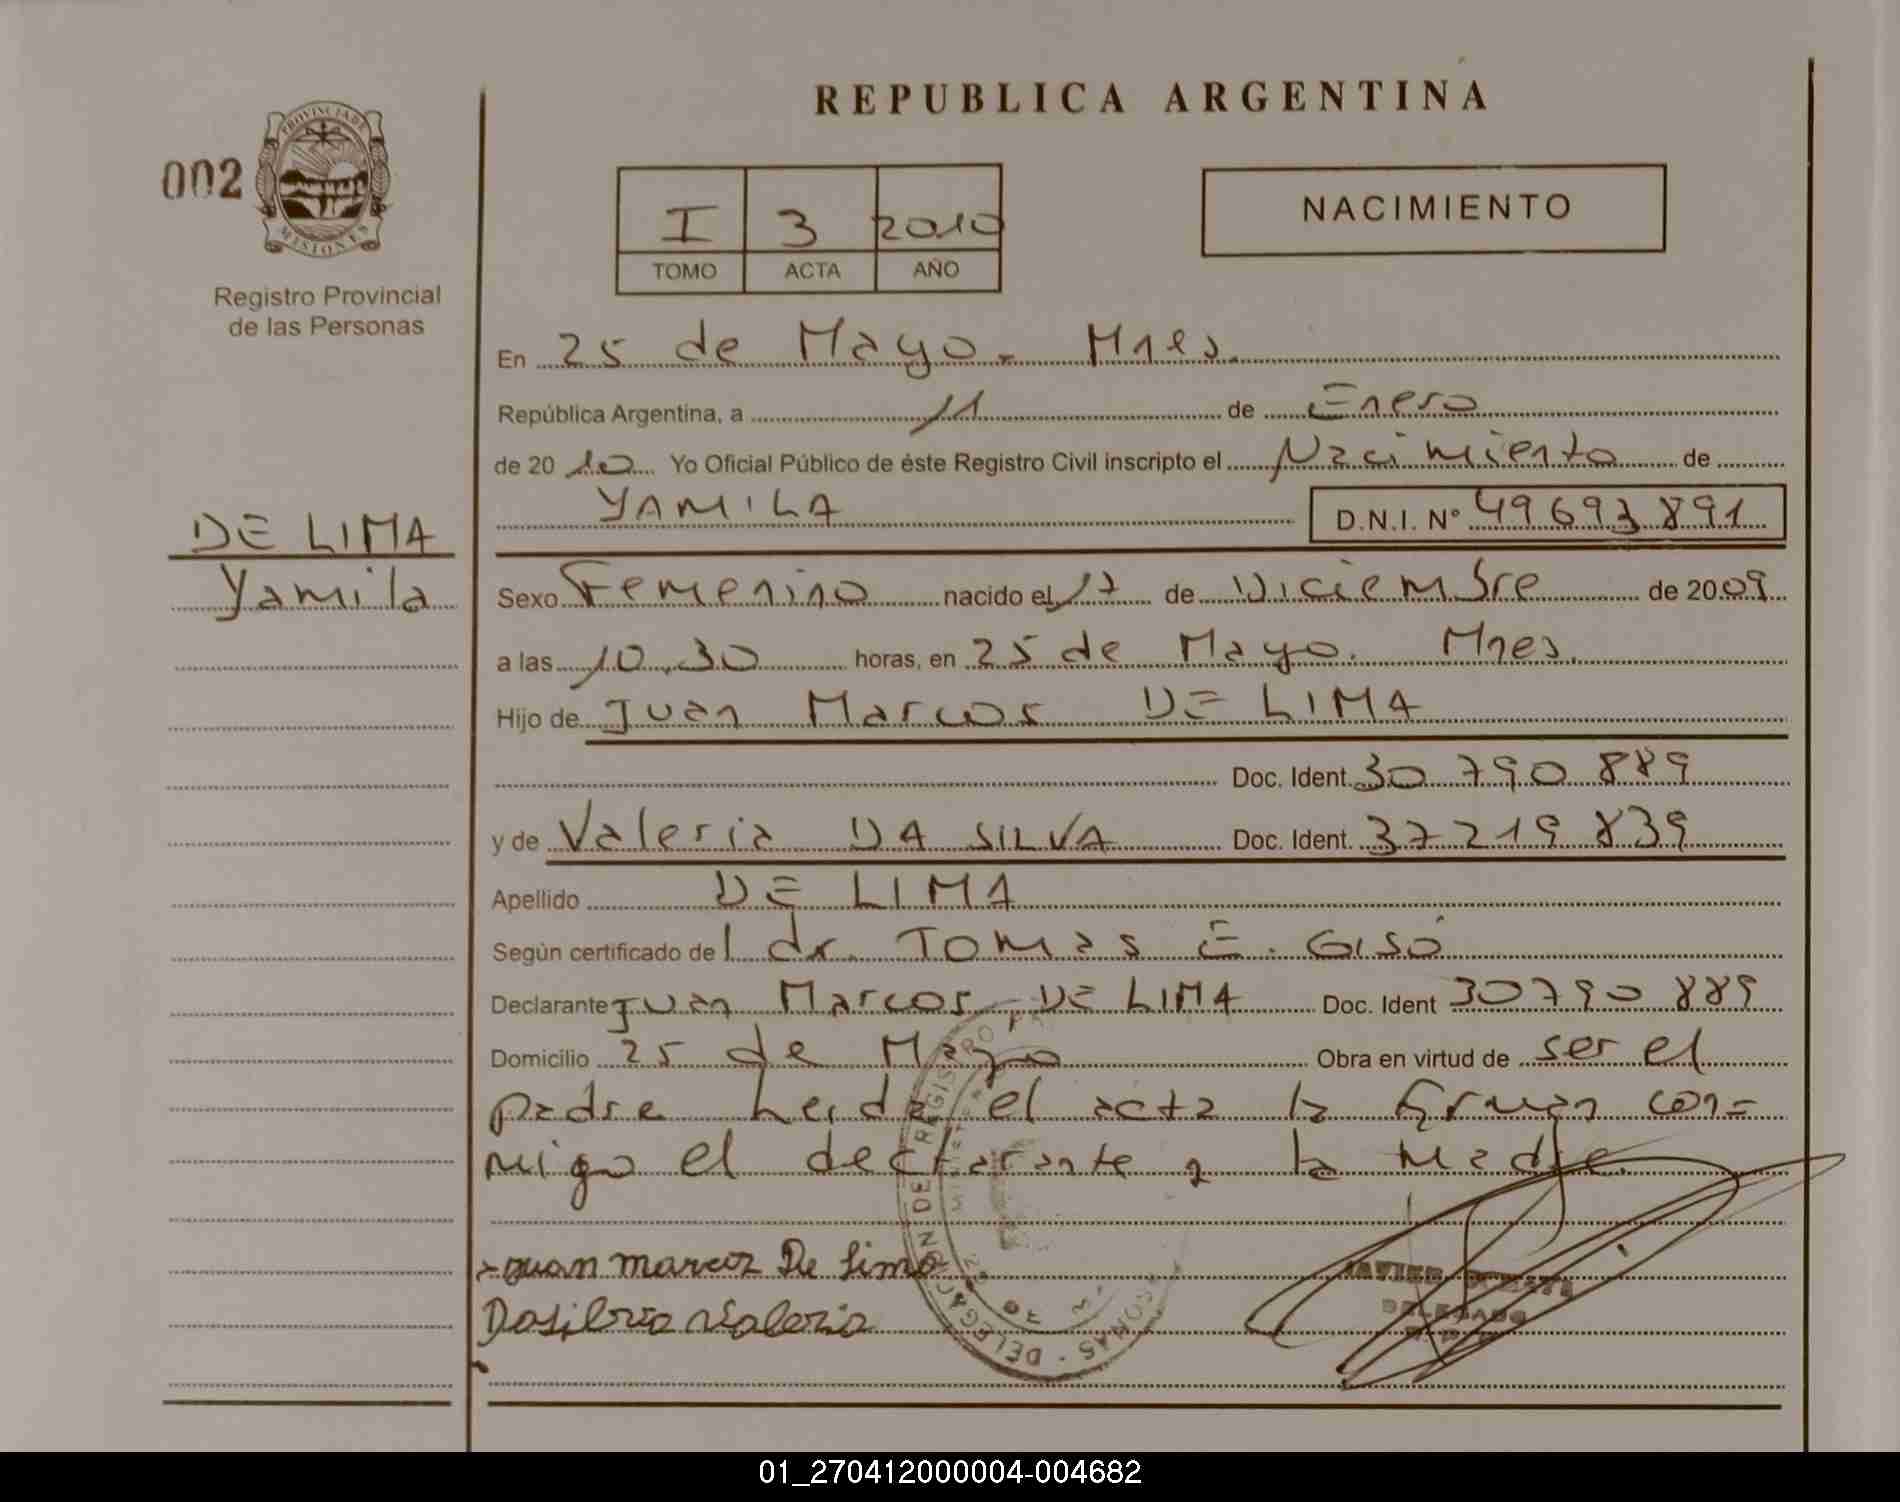 REPUBLICA ARGENTINA
002
PROVINCIA DE
MISIONES
Registro Provincial
de las Personas
I 3 2010
TOMO ACTA AÑO
NACIMIENTO
En 25 de Mayo. Mnes.
República Argentina, a 11 de Enero
de 20 10 Yo Oficial Público de éste Registro Civil inscripto el Nacimiento de
YAMILA D.N.I. Nº 49693891
DE LIMA
Yamila
Sexo Femenino nacido el 17 de Diciembre de 2009
a las 10.30 horas, en 25 de Mayo. Mnes.
Hijo de Juan Marcos DE LIMA
Doc. Ident. 30 790 889
y de Valeria DA SILVA Doc. Ident. 37 219 839
Apellido DE LIMA
Según certificado del dr. TOMAS E. GISÓ
Declarante Juan Marcos DE LIMA Doc. Ident 30790 889
Domicilio 25 de Mayo Obra en virtud de ser el
padre Leida el acta la firman con=
migo el declarante y la Madre.
Juan marcoz De Lima
Dasilvia Valeria
DELEGACION DE REGISTRO
DELEGADO
01_270412000004-004682